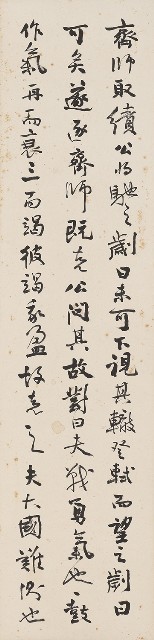 齊師敗績公將馳之劌曰未可下視其轍登軾而望之劌曰
可矣遂逐齊師既克公問其故對曰夫戰勇氣也一鼓
作氣再而衰三而竭彼竭我盈故克之夫大國難測也